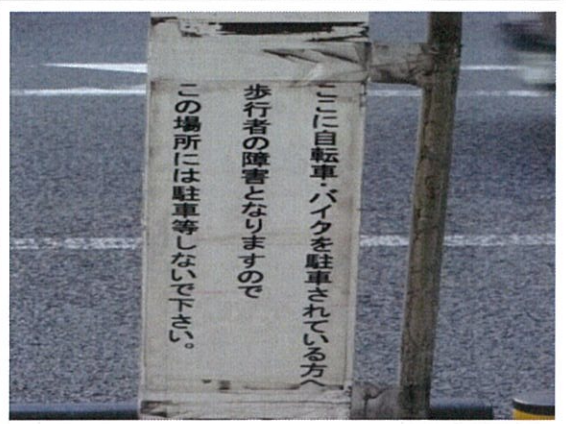 ここに自転車・バイクを駐車されている方へ
歩行者の障害となりますので
この場所には駐車等しないで下さい。